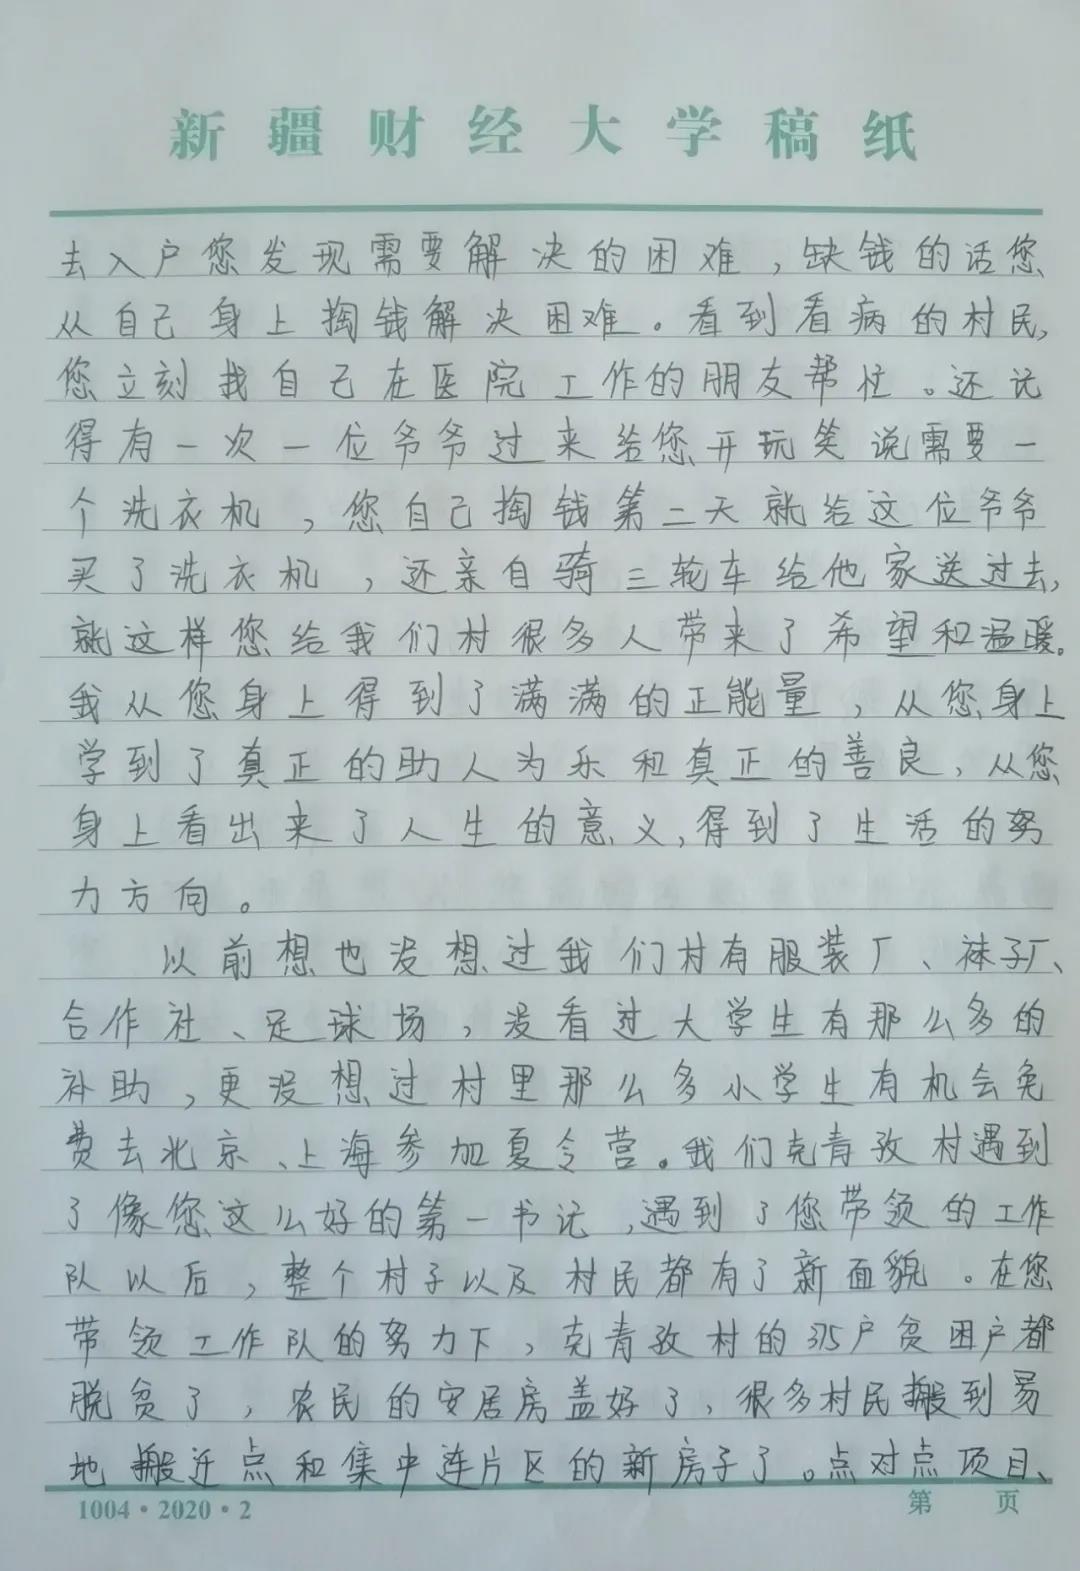 新疆财经大学稿纸
去入户您发现需要解决的困难，缺钱的话您
从自己身上掏钱解决困难。看到看病的村民，
您立刻找自己在医院工作的朋友帮忙。还记
得有一次一位爷爷过来给您开玩笑说需要一
个洗衣机，您自己掏钱第二天就给这位爷爷
买了洗衣机，还亲自骑三轮车给他家送过去，
就这样您给我们村很多人带来了希望和温暖。
我从您身上得到了满满的正能量，从您身上
学到了真正的助人为乐和真正的善良，从您
身上看出来了人生的意义，得到了生活的努
力方向。
以前想也没想过我们村有服装厂、袜子厂、
合作社、足球场，没看过大学生有那么多的
补助，更没想过村里那么多小学生有机会免
费去北京、上海参加夏令营。我们克青孜村遇到
了像您这么好的第一书记，遇到了您带领的工作
队以后，整个村子以及村民都有了新面貌。在您
带领工作队的努力下，克青孜村的375户贫困户都
脱贫了，农民的安居房盖好了，很多村民搬到易
地搬迁点和集中连片区的新房子了。点对点项目、
1004·2020·2
第 页